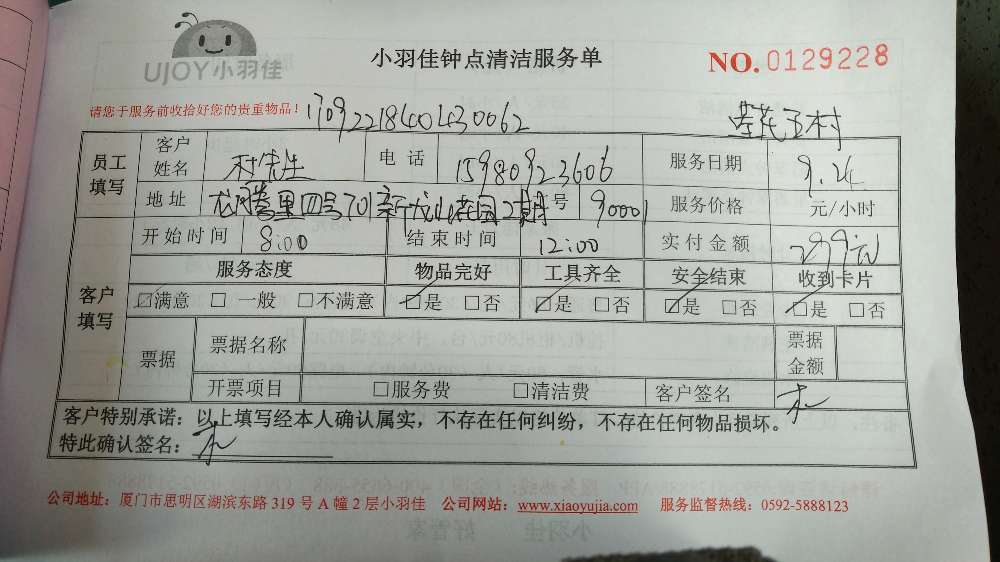 UJOY小羽佳
小羽佳钟点清洁服务单
NO.0129228
请您于服务前收拾好您的贵重物品！1709221840430062
莲花五村
员工填写 客户姓名 林先生 电话 15980923606 服务日期 9.24
地址 四号701新龙山花园2期 号 90001 服务价格 元/小时
开始时间 8:00 结束时间 12:00 实付金额 299元
客户填写 服务态度 物品完好 工具齐全 安全结束 收到卡片
☑满意 □一般 □不满意 ☑是 □否 ☑是 □否 ☑是 □否 ☑是 □否
票据 票据名称 票据金额
开票项目 □服务费 □清洁费 客户签名
客户特别承诺：以上填写经本人确认属实，不存在任何纠纷，不存在任何物品损坏。
特此确认签名：
公司地址：厦门市思明区湖滨东路 319 号 A 幢 2 层小羽佳 公司网站：www.xiaoyujia.com 服务监督热线：0592-5888123